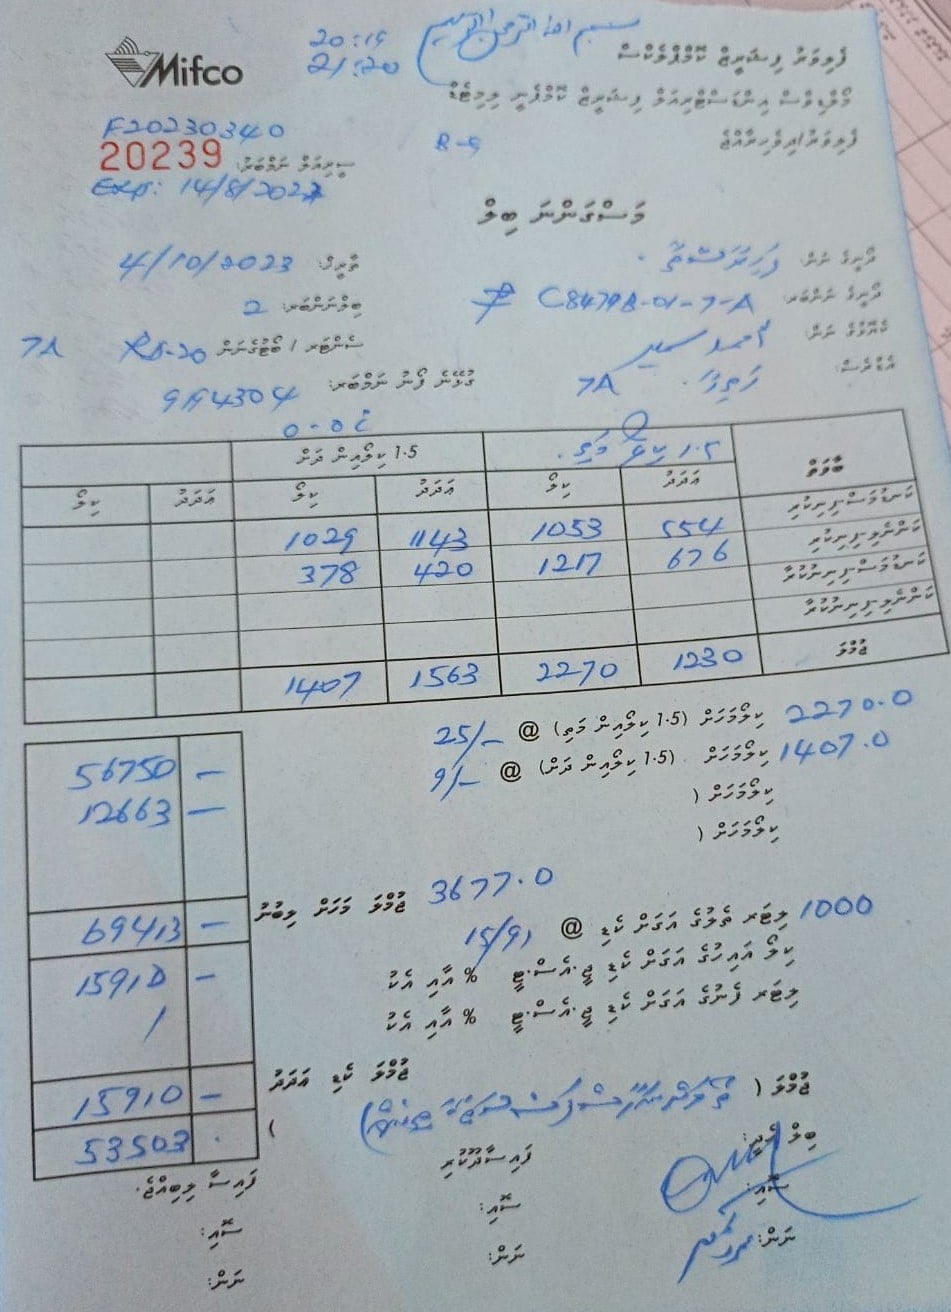 Mifco
20:19
21:20
بسم الله الرحمن الرحيم
ފެލިވަރު ފިޝަރީޒް ކޮމްޕްލެކްސް
މޯލްޑިވްސް އިންޑަސްޓްރިއަލް ފިޝަރީޒް ކޮމްޕެނީ ލިމިޓެޑް
ފެލިވަރު/ދިވެހިރާއްޖެ
F20230340
R-9
ސީރިއަލް ނަމްބަރު: 20239
Exp: 14/8/2027
މަސްގަންނަ ބިލް
ދޯނީގެ ނަން:
ތާރީޚް: 4/10/2023
ދޯނީގެ ނަންބަރު: C8479B-01-7-A
ބިލްނަންބަރު: 2
ކެޔޮޅުގެ ނަން: އަހްމަދު ސމީރު
ސެންޓަރ / ބޯޓުގެނަން RS-20 7A
އެޑްރެސް: 7A
ގުޅޭނެ ފޯނު ނަމްބަރު: 9194304
0-08
ބާވަތް 1.5 ކިލޯ މަތި. 1.5 ކިލޯއިން ދަށް
އަދަދު ކިލޯ އަދަދު ކިލޯ އަދަދު ކިލޯ
ކަނޑުމަސްފިނިކުރި 554 1053 1143 1029
ކަންނެލިފިނިކުރި 676 1217 420 378
ކަނޑުމަސްފިނިނުކުރާ
ކަންނެލިފިނިނުކުރާ
ޖުމްލަ 1230 2270 1563 1407
2270.0 ކިލޯމަހަށް (1.5 ކިލޯއިން މަތި) @ 25/- 56750 -
1407.0 ކިލޯމަހަށް (1.5 ކިލޯއިން ދަށް) @ 9/- 12663 -
ކިލޯމަހަށް (
ކިލޯމަހަށް (
3677.0 ޖުމްލަ މަހަށް ލިބުނު 69413 -
1000 ލިޓަރ ތެލުގެ އަގަށް ކެޑި @ 15/91 15910 -
ކިލޯ އައިހުގެ އަގަށް ކެޑި ޖީ.އެސް.ޓީ % އާއި އެކު
ލިޓަރ ފެނުގެ އަގަށް ކެޑި ޖީ.އެސް.ޓީ % އާއި އެކު /
ޖުމްލަ ކެޑި އަދަދު 15910 -
ޖުމްލަ ( ) 53503 .
ބިލް ހެދީ: ފައިސާދޫކުރި ފައިސާ ލިބިއްޖެ.
ސޮއި: ސޮއި: ސޮއި:
ނަން: ނަން: ނަން: